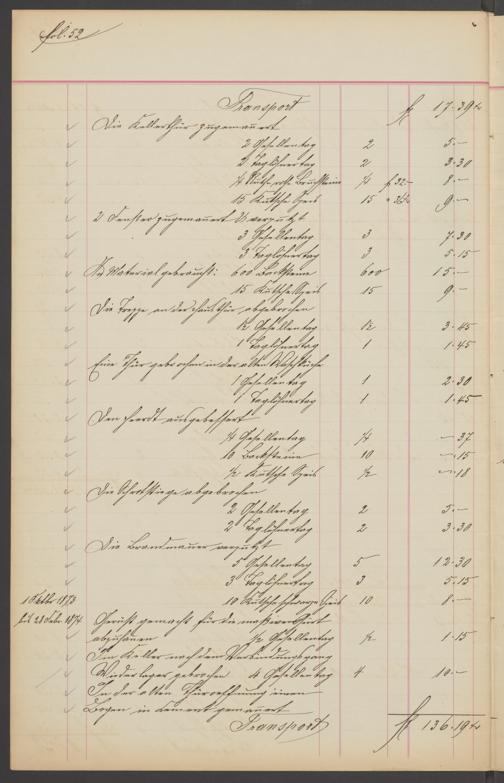 fol. 52
Transport f 17.39
Die Kellerthür zugemauert
2 Gesellentag 2 5.—
2 Taglöhnertag 2 3.30
¼ Ruthe rothe Bruchsteine ¼ f 32.— 8.—
15 Kütsche Speis 15 9.—
2 Fenster zugemauert & verputzt
3 Gesellentag 3 7.30
3 Taglöhnertag 3 5.15
An Material gebraucht: 600 Backsteine 600 15.—
15 Kütsche Speis 15 9.—
Die Treppe an der Hausthür abgebrochen
1½ Gesellentag 1½ 3.45
1 Taglöhnertag 1 1.45
Eine Thür gebrochen in der alten Waschküche
1 Gesellentag 1 2.30
1 Taglöhnertag 1 1.45
Den Heerdt ausgebessert
¼ Gesellentag ¼ —.37
10 Backsteine 10 —.15
½ Kütsche Speis ½ —.18
abgebrochen
2 Gesellentag 2 5.—
2 Taglöhnertag 2 3.30
Die Brandmauer verputzt
5 Gesellentag 5 12.30
3 Taglöhnertag 3 5.15
10 Kütsche schwarze Speis 10 8.—
1 Oktbr 1873
bis 28 Febr. 1874
Gerüst gemacht für die
½ Gesellentag ½ 1.15
Im Keller nach dem Verbindungsgang
Wiederlager gebrochen 4 Gesellentag 4 10.—
In der alten Thüroeffnung einen
Bogen in Cement gemauert
Transport f 136.19